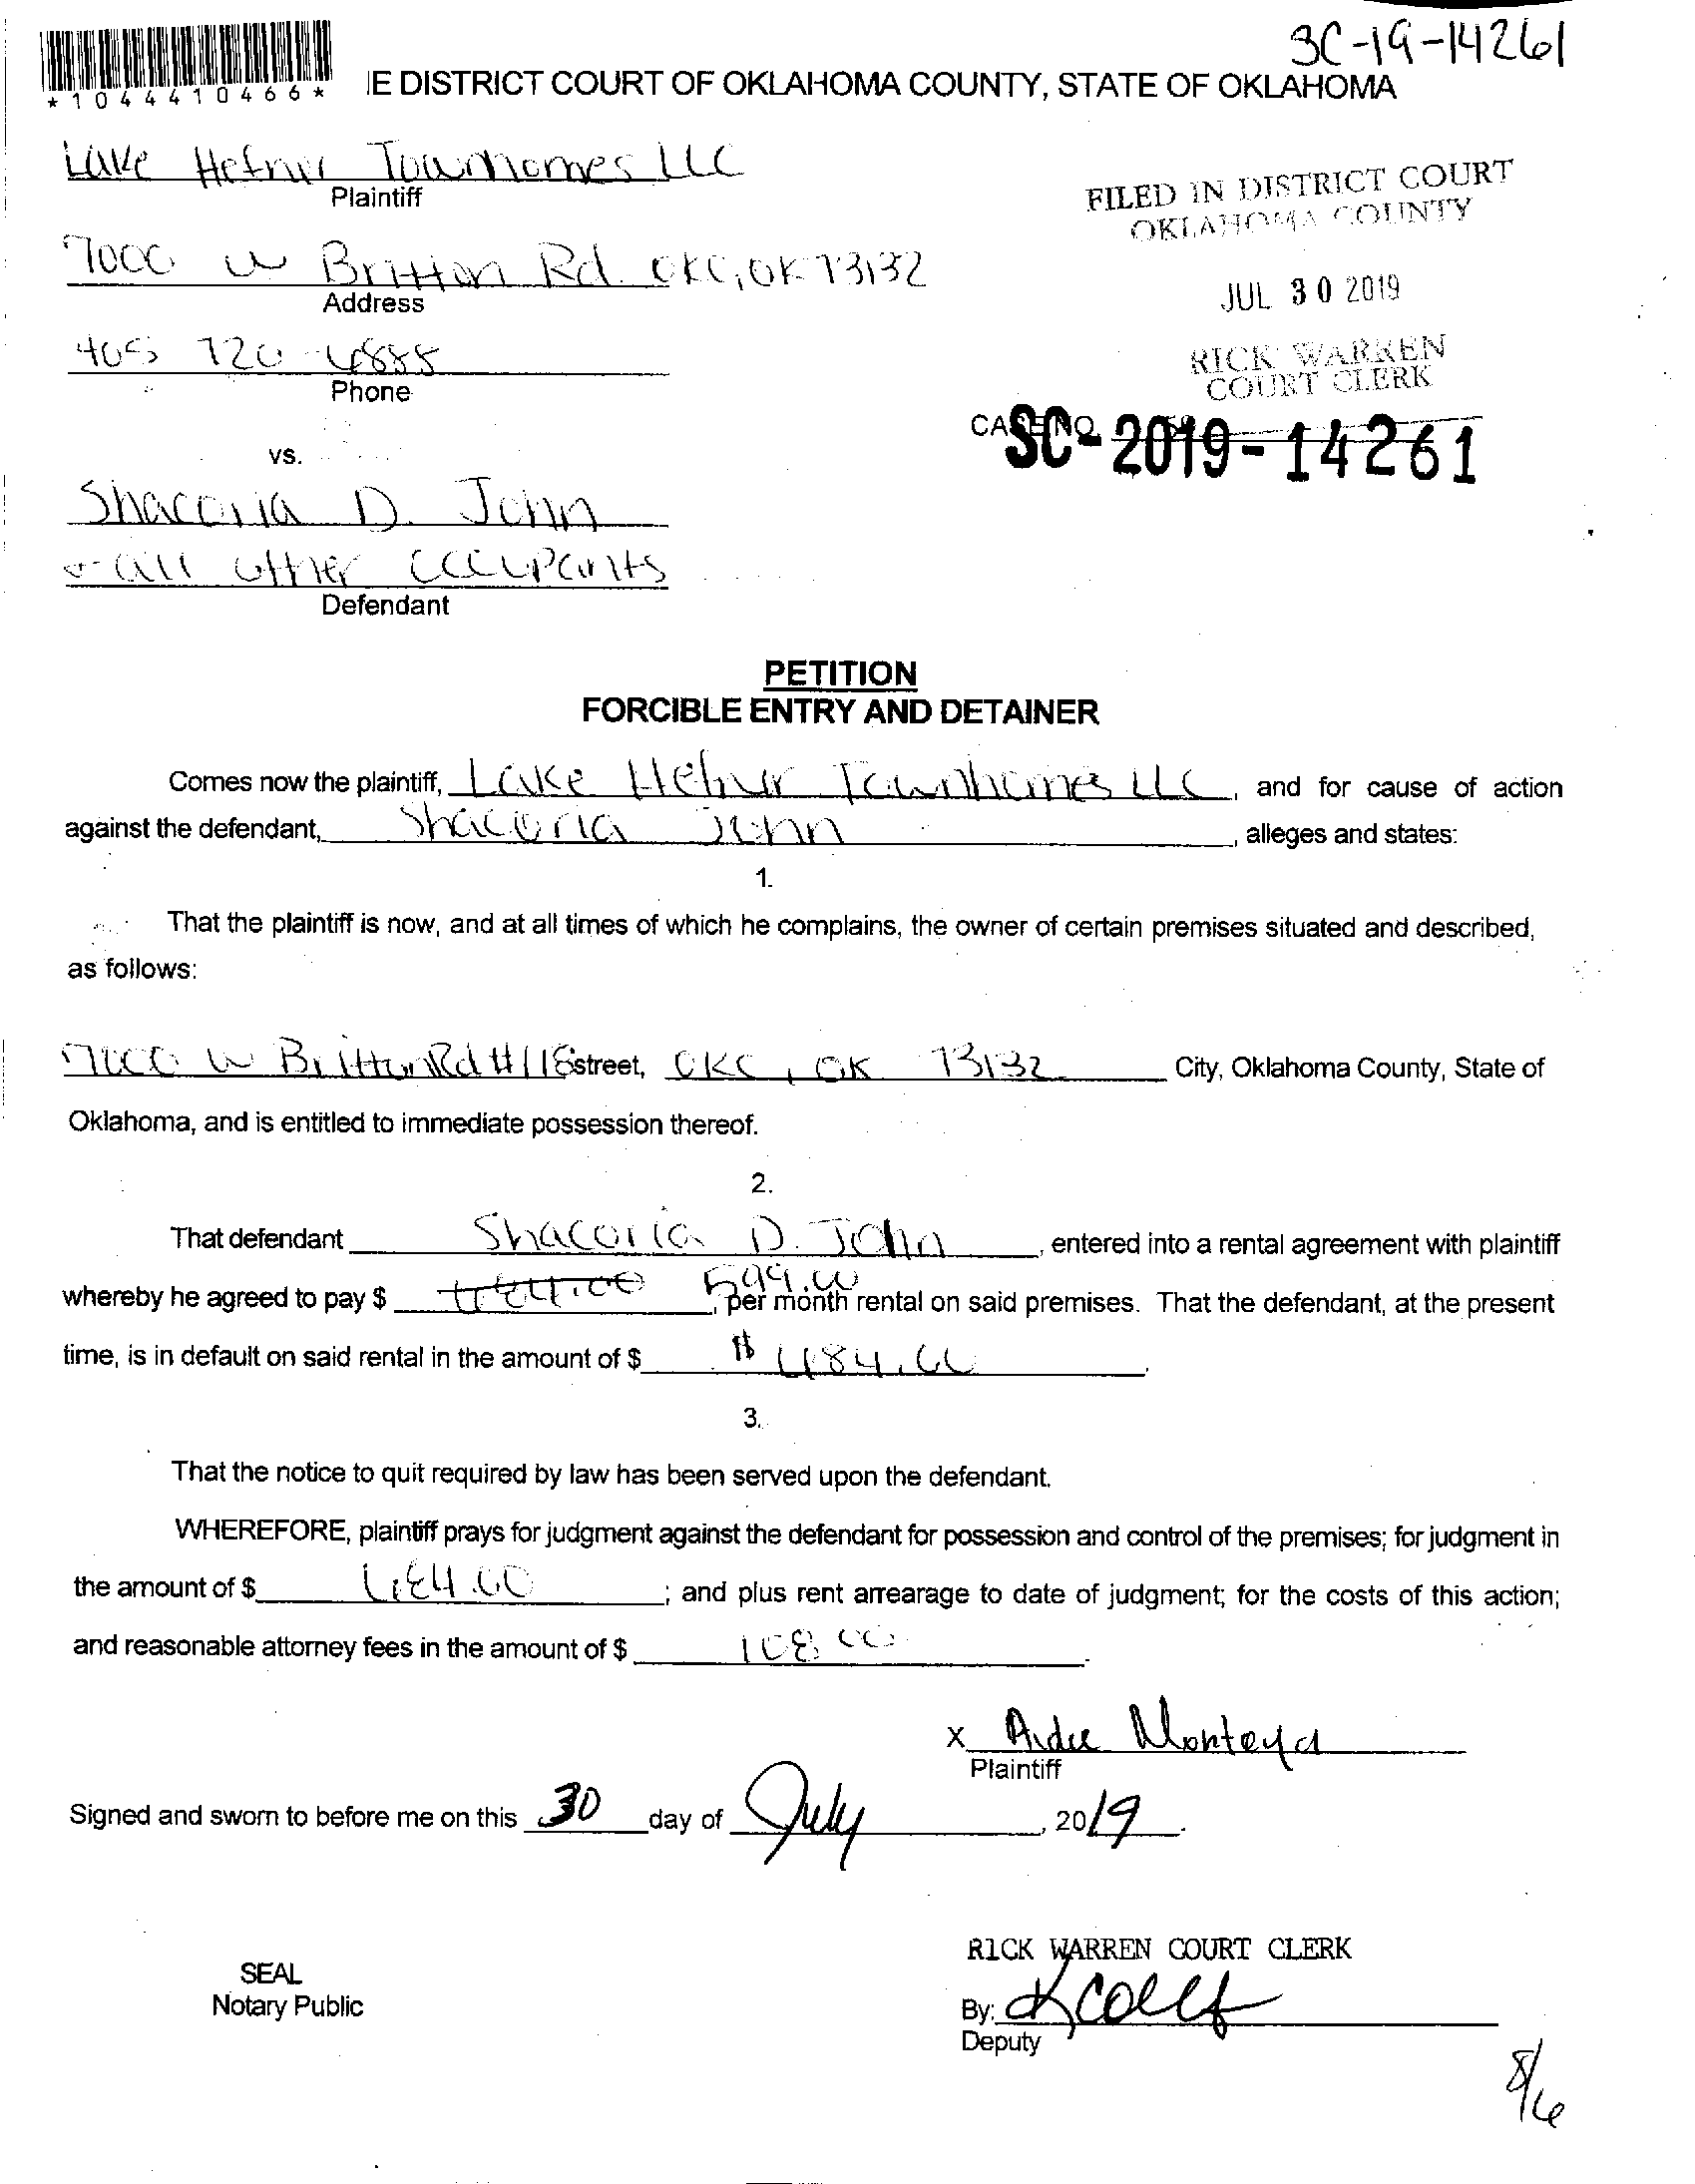 SC-19-14261
*1044410466*
IE DISTRICT COURT OF OKLAHOMA COUNTY, STATE OF OKLAHOMA
Lake Hefner Townhomes LLC
Plaintiff
FILED IN DISTRICT COURT
OKLAHOMA COUNTY
7000 W Britton Rd. OKC, OK 73132
Address
JUL 30 2019
405 720-6888
Phone
RICK WARREN
COURT CLERK
CASE NO.
SC-2019-14261
vs.
Shacoria D. John
& all other occupants
Defendant
PETITION
FORCIBLE ENTRY AND DETAINER
Comes now the plaintiff, Lake Hefner Townhomes LLC, and for cause of action
against the defendant, Shacoria John, alleges and states:
1.
That the plaintiff is now, and at all times of which he complains, the owner of certain premises situated and described,
as follows:
7000 W Britton Rd #118 street, OKC, OK 73132 City, Oklahoma County, State of
Oklahoma, and is entitled to immediate possession thereof.
2.
That defendant Shacoria D. John, entered into a rental agreement with plaintiff
whereby he agreed to pay $ 599.00, per month rental on said premises. That the defendant, at the present
time, is in default on said rental in the amount of $
3.
That the notice to quit required by law has been served upon the defendant.
WHEREFORE, plaintiff prays for judgment against the defendant for possession and control of the premises; for judgment in
the amount of $ ; and plus rent arrearage to date of judgment; for the costs of this action;
and reasonable attorney fees in the amount of $ 108.00.
x Aidee Montoya
Plaintiff
Signed and sworn to before me on this 30 day of July, 2019.
RICK WARREN COURT CLERK
SEAL
Notary Public
By:
Deputy
8/6